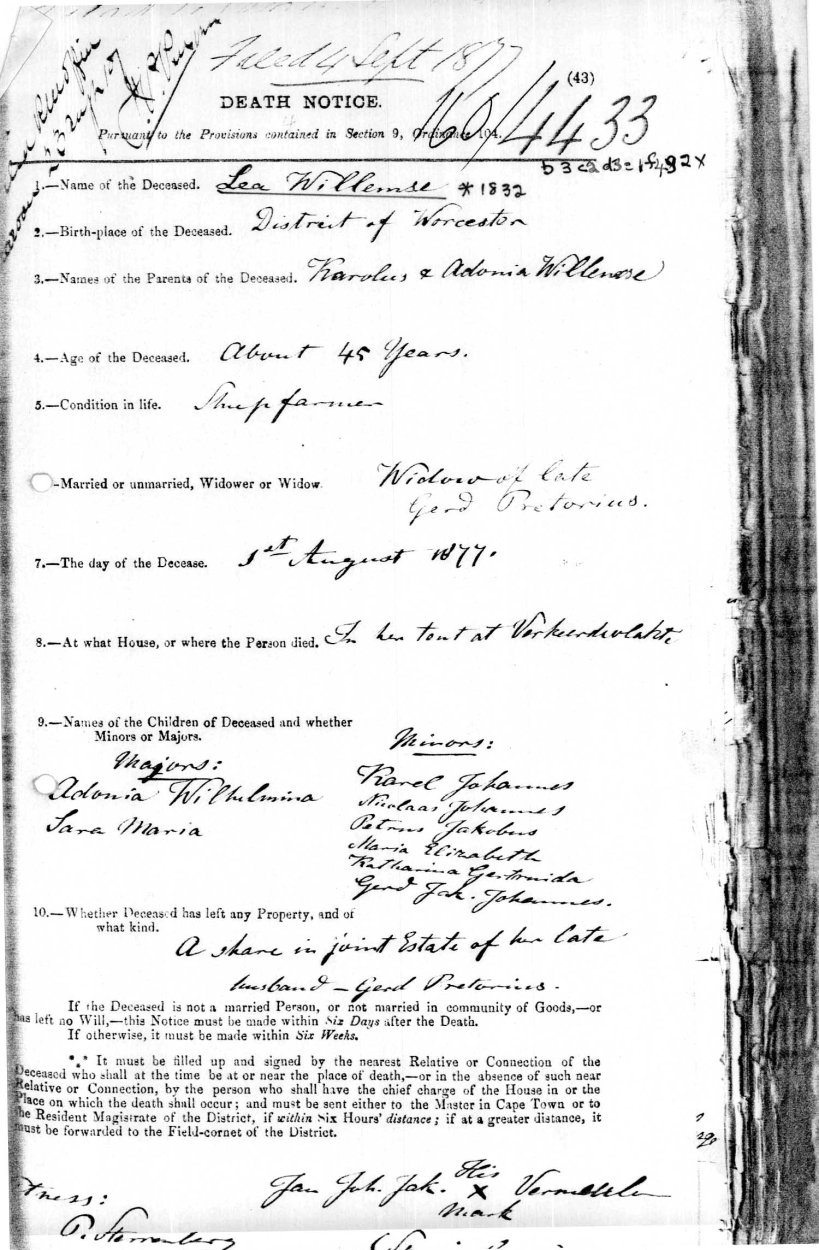 Filed 4 Sept 1877
(43)
DEATH NOTICE.
160/4433
Pursuant to the Provisions contained in Section 9, Ordinance 104.
b3 c2 d3 = 1f492x
1.—Name of the Deceased. Lea Willemse *1832
2.—Birth-place of the Deceased. District of Worcester
3.—Names of the Parents of the Deceased. Karolus & Adonia Willemse
4.—Age of the Deceased. About 45 Years.
5.—Condition in life. Sheepfarmer
-Married or unmarried, Widower or Widow. Widow of late
Gerd Pretorius.
7.—The day of the Decease. 1st August 1877.
8.—At what House, or where the Person died. In her tent at Verkeerdevlakte
9.—Names of the Children of Deceased and whether
Minors or Majors.
Majors:
Adonia Wilhelmina
Sara Maria
Minors:
Karel Johannes
Nicolaas Johannes
Petrus Jakobus
Maria Elizabeth
Katharina Gertruida
Gerd Jak. Johannes.
10.—Whether Deceased has left any Property, and of
what kind.
A share in joint Estate of her late
husband – Gerd Pretorius.
If the Deceased is not a married Person, or not married in community of Goods,—or
has left no Will,—this Notice must be made within Six Days after the Death.
If otherwise, it must be made within Six Weeks.
*** It must be filled up and signed by the nearest Relative or Connection of the
Deceased who shall at the time be at or near the place of death,—or in the absence of such near
Relative or Connection, by the person who shall have the chief charge of the House in or the
Place on which the death shall occur; and must be sent either to the Master in Cape Town or to
the Resident Magistrate of the District, if within Six Hours' distance; if at a greater distance, it
must be forwarded to the Field-cornet of the District.
His
Jan Joh. Jak. X
Mark
tness:
P. Sterrenberg